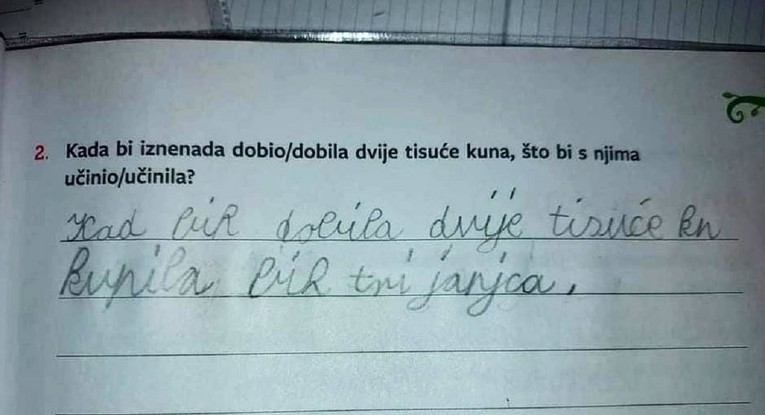 2. Kada bi iznenada dobio/dobila dvije tisuće kuna, što bi s njima
učinio/učinila?
Kad biR dobila dvije tisuće kn
kupila biR tri janjca.